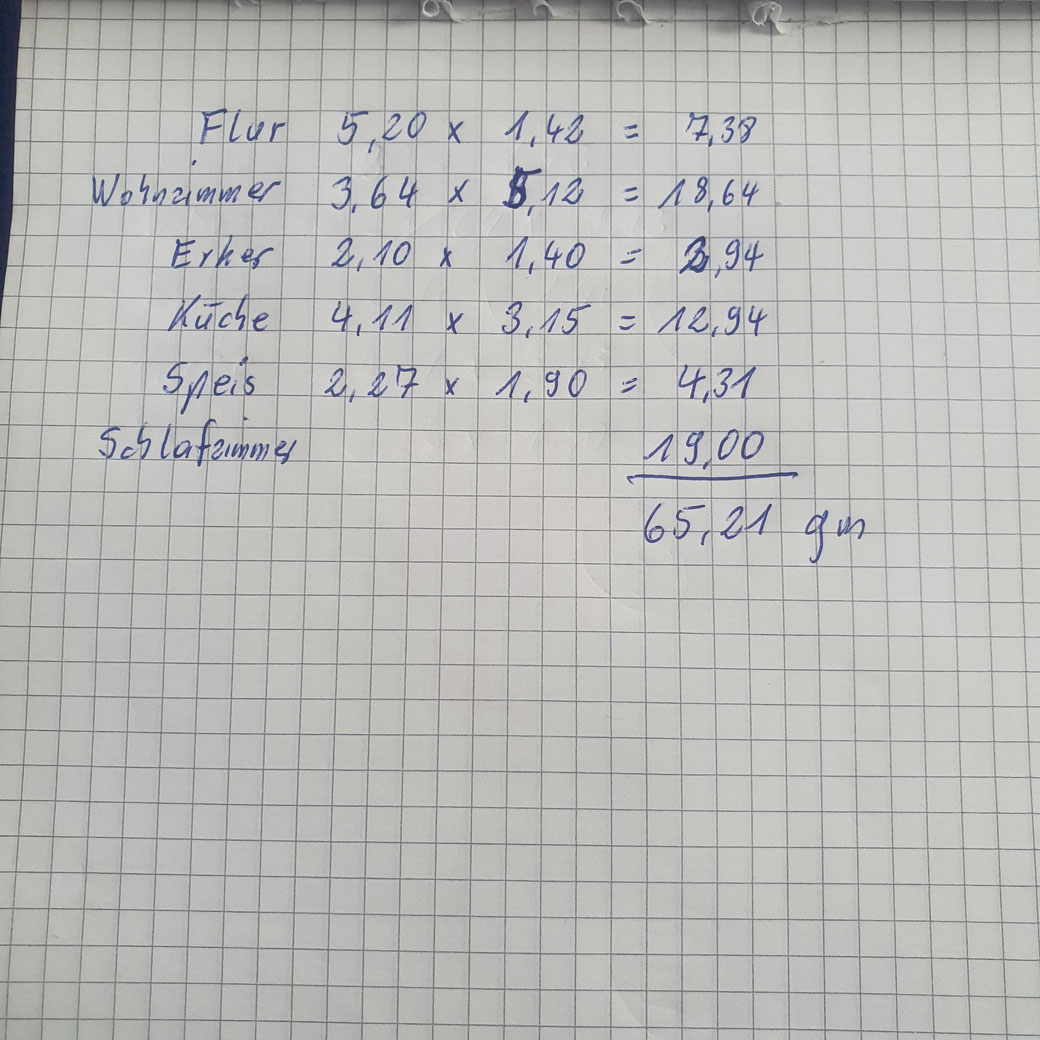 Flur 5,20 x 1,42 = 7,38
Wohnzimmer 3,64 x 5,12 = 18,64
Erker 2,10 x 1,40 = 2,94
Küche 4,11 x 3,15 = 12,94
Speis 2,27 x 1,90 = 4,31
Schlafzimmer 19,00
65,21 qm